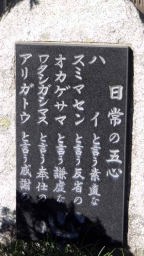 日常の五心
ハイと言う素直な
スミマセンと言う反省の
オカゲサマと言う謙虚な
ワタシガシマスと言う奉仕の
アリガトウと言う感謝